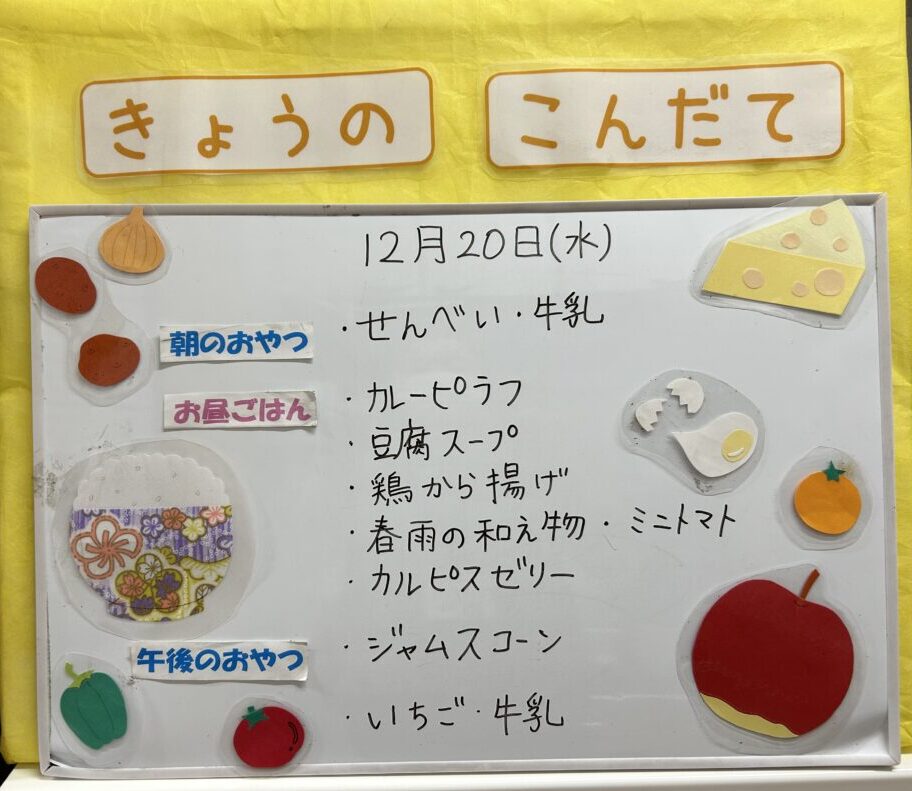 きょうの こんだて
12月20日(水)
朝のおやつ ・せんべい・牛乳
お昼ごはん ・カレーピラフ
・豆腐スープ
・鶏から揚げ
・春雨の和え物・ミニトマト
・カルピスゼリー
午後のおやつ ・ジャムスコーン
・いちご・牛乳